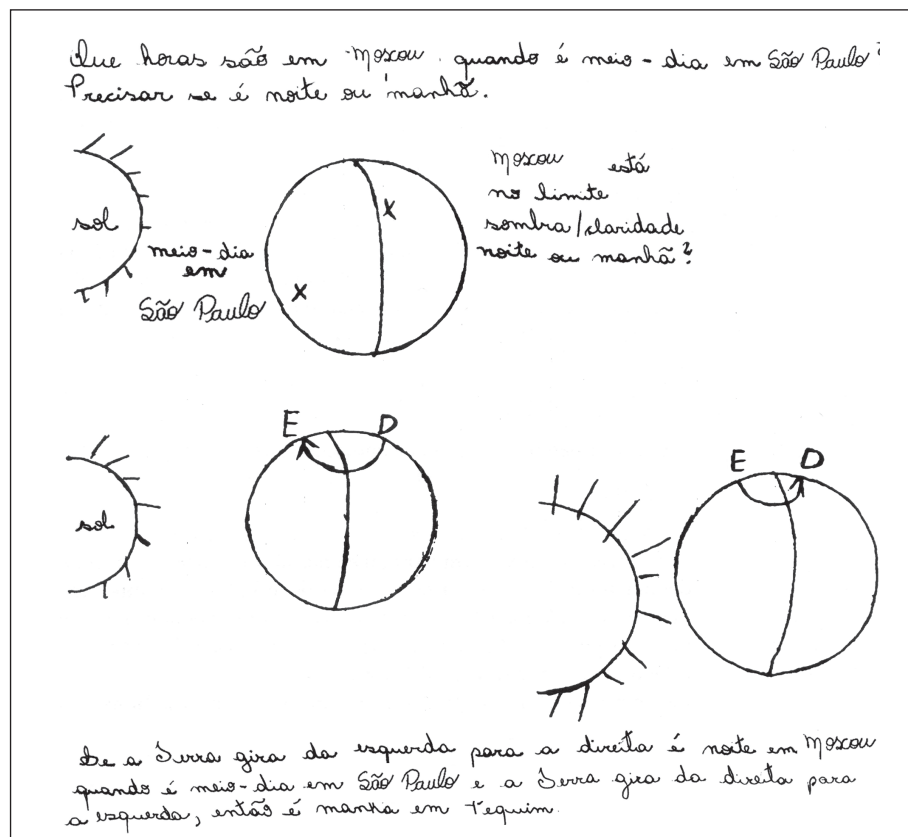 Que horas são em Moscou quando é meio-dia em São Paulo?
Precisar se é noite ou manhã.
sol
meio-dia
em
São Paulo
X
X
Moscou está
no limite
sombra/claridade
noite ou manhã?
E D
sol
E D
Se a Terra gira da esquerda para a direita é noite em Moscou
quando é meio-dia em São Paulo e a Terra gira da direita para
a esquerda, então é manha em Pequim.